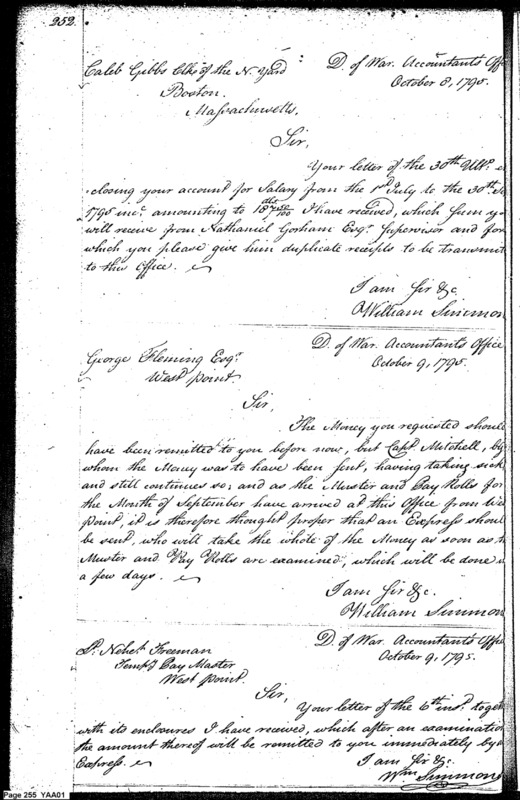 252.
Caleb Gibbs Clk of the N. Yard
Boston.
Massachusetts.
D. of War. Accountants Offi
October 8, 1795.
Sir,
Your letter of the 30th Ulto. e
closing your account for Salary from the 1st July to the 30th Se
1795 inc. amounting to I have received, which sum yo
will receive from Nathaniel Gorham Esqr. Supervisor and for
which you please give him duplicate receipts to be transmit
to this Office.
I am Sir &c.
William Simmon
D. of War. Accountants Office
October 9, 1795.
George Fleming Esqr.
West point.
Sir,
The Money you requested should
have been remitted to you before now, but Capt. Mitchell, by
whom the Money was to have been sent, having taking sick
and still continues so; and as the Muster and Pay Rolls for
the Month of September have arrived at this Office from We
point, it is therefore thought proper that an Express shoul
be sent, who will take the whole of the Money as soon as t
Muster and Pay Rolls are examined, which will be done i
a few days.
I am Sir &c.
William Simmon
D. of War. Accountants Office
October 9, 1795.
Nehet. Freeman
Pay Master
West point.
Sir,
Your letter of the 6th inst. toget
with its enclosures I have received, which after an examination
the amount thereof will be remitted to you immediately by
Express.
I am Sir &c.
Wm Simmons
Page 255 YAA01